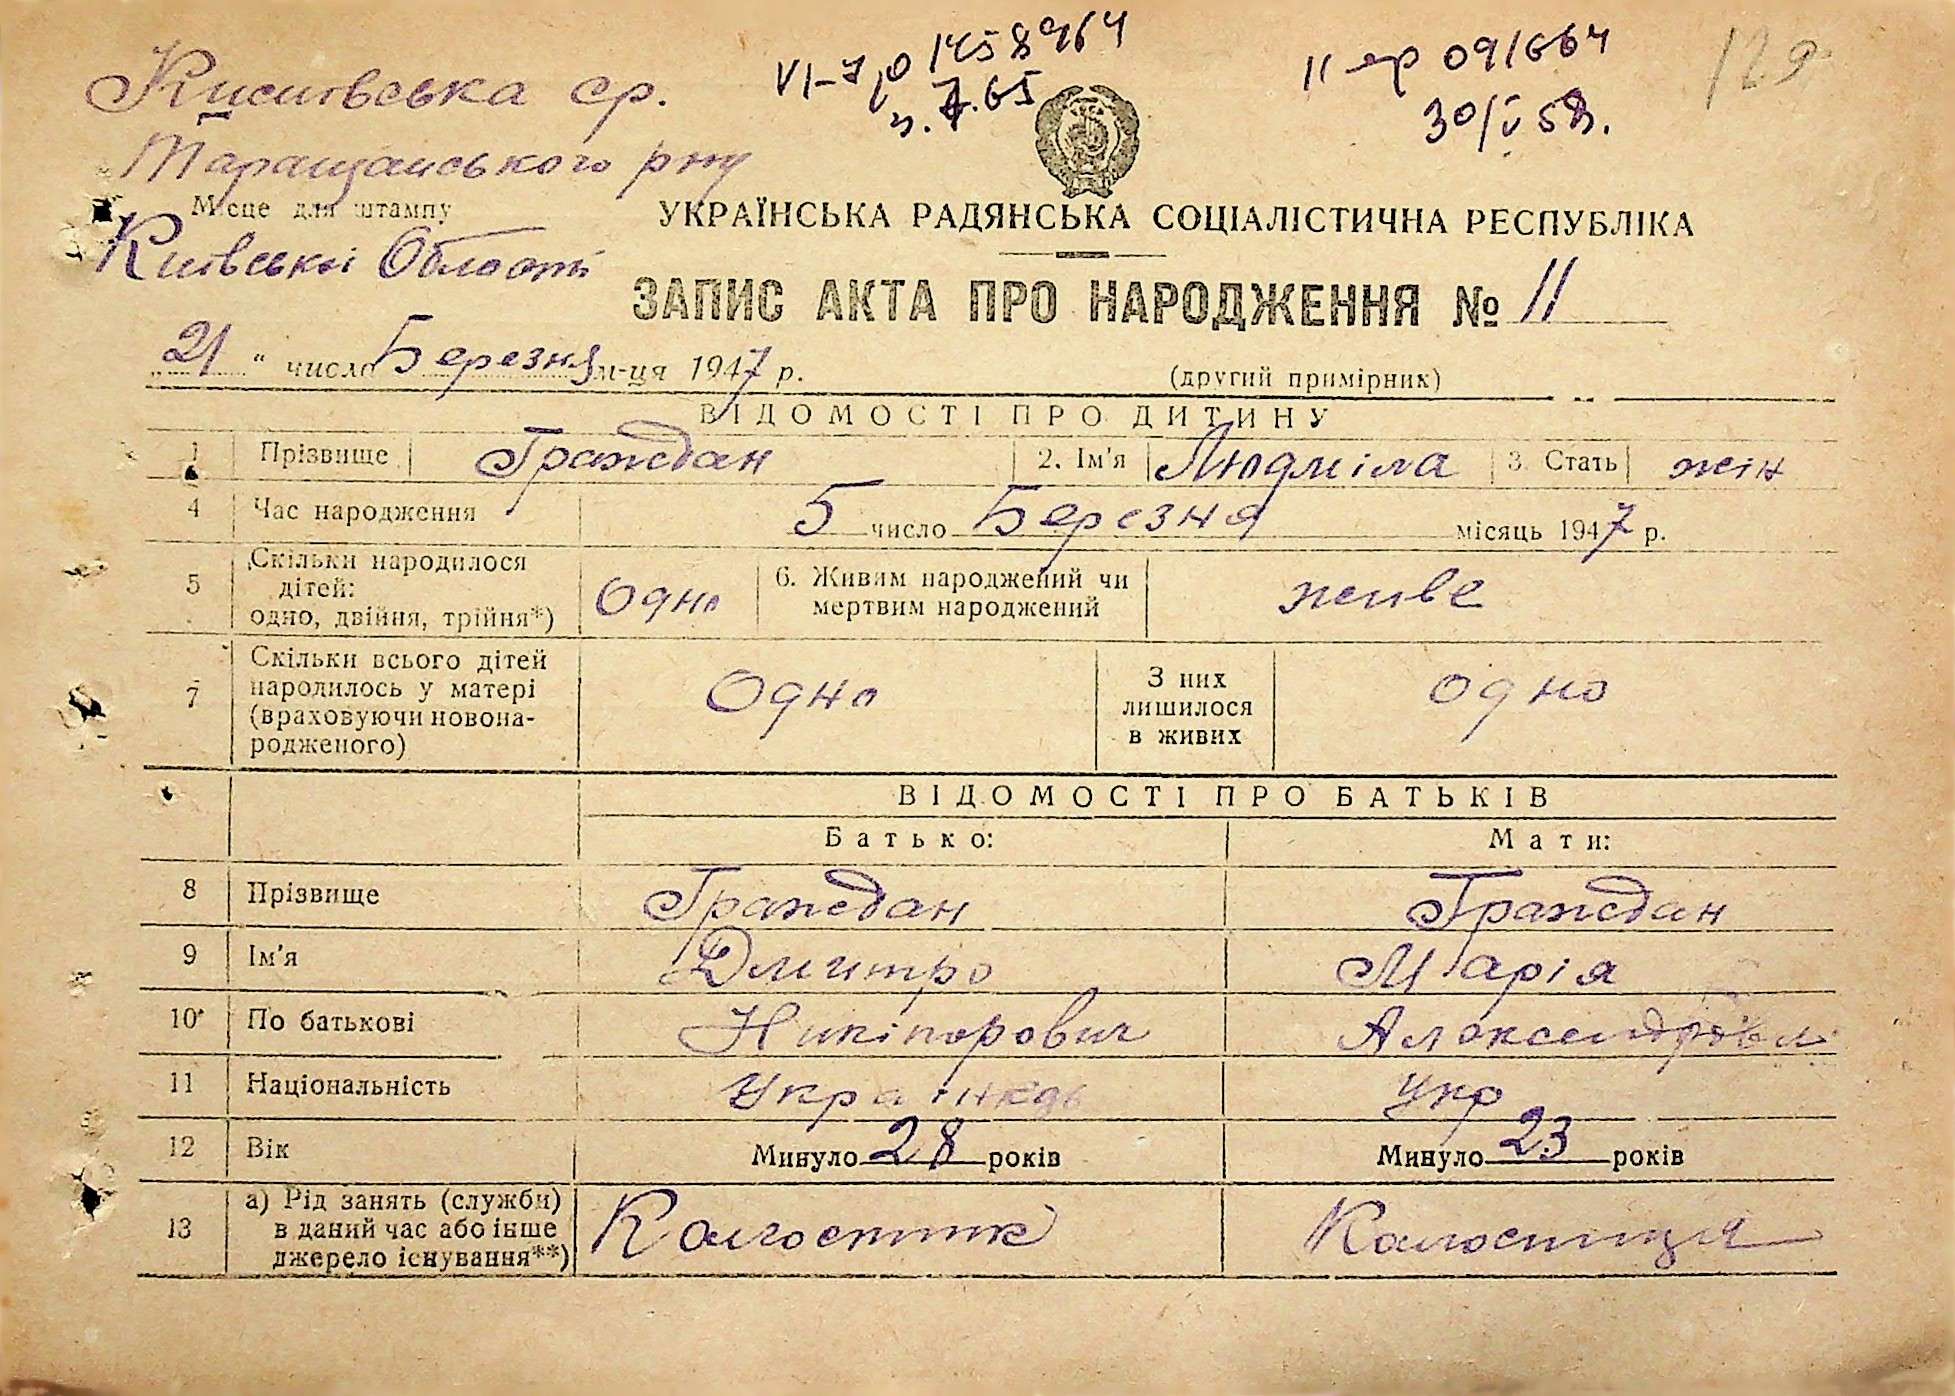 VI-ур 1458964
3.7.65
II ер 091664
30/V 58.
129
Киситвська ср.
Таращанського р-ну
Місце для штампу
Київської Області
УКРАЇНСЬКА РАДЯНСЬКА СОЦІАЛІСТИЧНА РЕСПУБЛІКА
ЗАПИС АКТА ПРО НАРОДЖЕННЯ № 11
„21“ число Березня м-ця 1947 р.
(другий примірник)
ВІДОМОСТІ ПРО ДИТИНУ
1 Прізвище Граждан 2. Ім'я Людміла 3. Стать жін
4 Час народження 5 число Березня місяць 1947 р.
5 Скільки народилося дітей: одно, двійня, трійня*) Одно 6. Живим народжений чи мертвим народжений живе
7 Скільки всього дітей народилось у матері (враховуючи новонародженого) Одно З них лишилося в живих одно
ВІДОМОСТІ ПРО БАТЬКІВ
Батько: Мати:
8 Прізвище Граждан Граждан
9 Ім'я Дмитро Марія
10 По батькові Никіпорович Александровн
11 Національність Українець Укр
12 Вік Минуло 28 років Минуло 23 років
13 а) Рід занять (служби) в даний час або інше джерело існування**) Колгоспник Колгоспниця